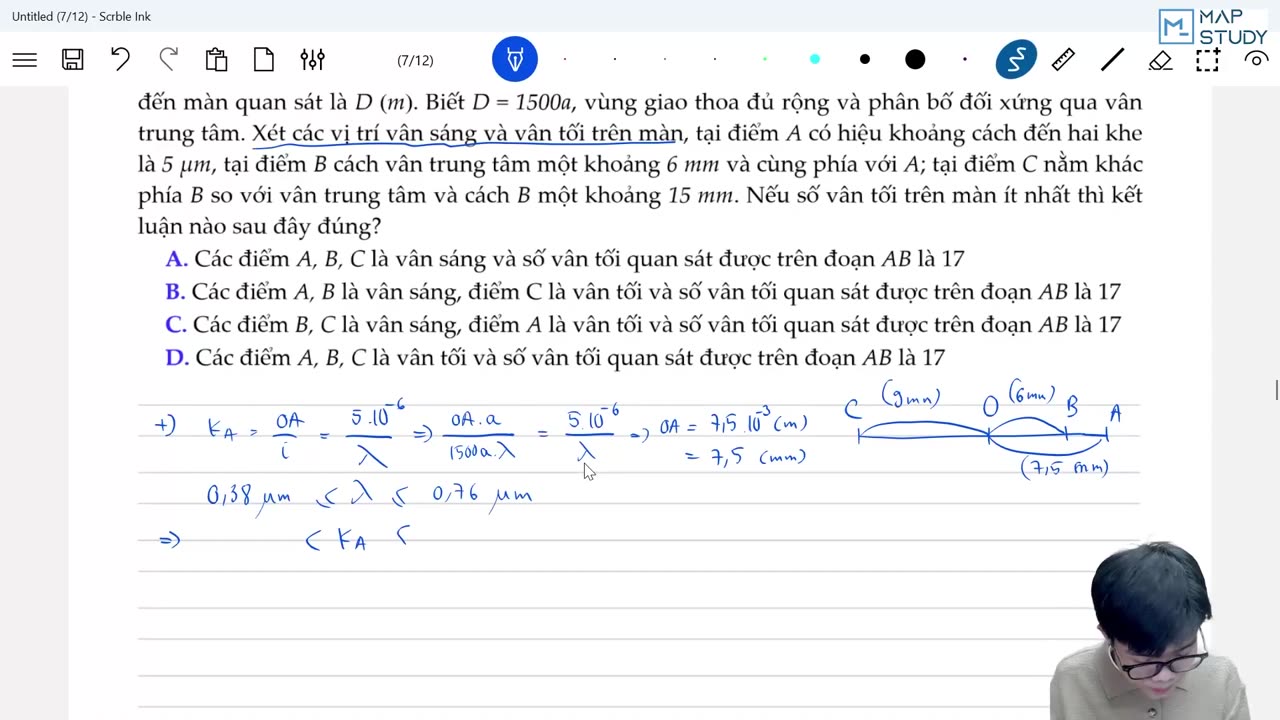 Untitled (7/12) - Scrble Ink
MAP
STUDY
(7/12)
đến màn quan sát là D (m). Biết D = 1500a, vùng giao thoa đủ rộng và phân bố đối xứng qua vân
trung tâm. Xét các vị trí vân sáng và vân tối trên màn, tại điểm A có hiệu khoảng cách đến hai khe
là 5 μm, tại điểm B cách vân trung tâm một khoảng 6 mm và cùng phía với A; tại điểm C nằm khác
phía B so với vân trung tâm và cách B một khoảng 15 mm. Nếu số vân tối trên màn ít nhất thì kết
luận nào sau đây đúng?
A. Các điểm A, B, C là vân sáng và số vân tối quan sát được trên đoạn AB là 17
B. Các điểm A, B là vân sáng, điểm C là vân tối và số vân tối quan sát được trên đoạn AB là 17
C. Các điểm B, C là vân sáng, điểm A là vân tối và số vân tối quan sát được trên đoạn AB là 17
D. Các điểm A, B, C là vân tối và số vân tối quan sát được trên đoạn AB là 17
+) K_A = OA/i = 5.10^-6/λ => OA.a/1500a.λ = 5.10^-6/λ => OA = 7,5.10^-3 (m)
= 7,5 (mm)
C (9mm) O (6mm) B A
(7,5 mm)
0,38 μm < λ < 0,76 μm
=> < K_A <